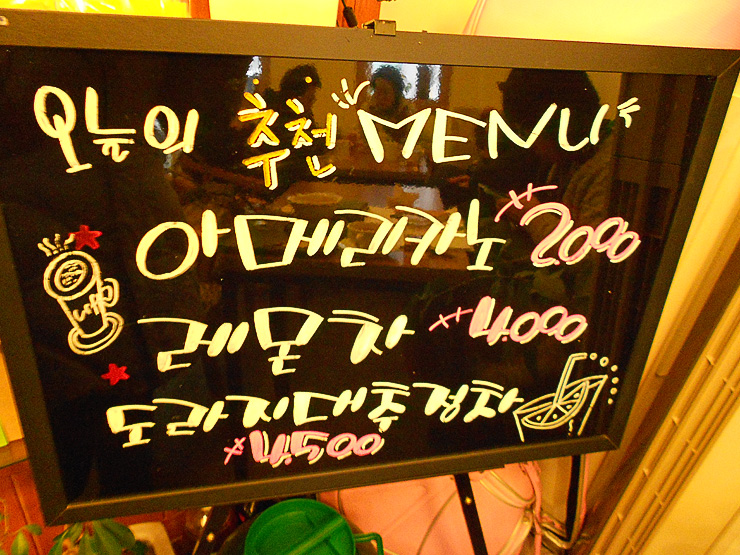 오늘의 추천 MENU
아메리카노 ₩2000
레몬차 ₩4.000
도라지대추경차
₩4.500
coffee